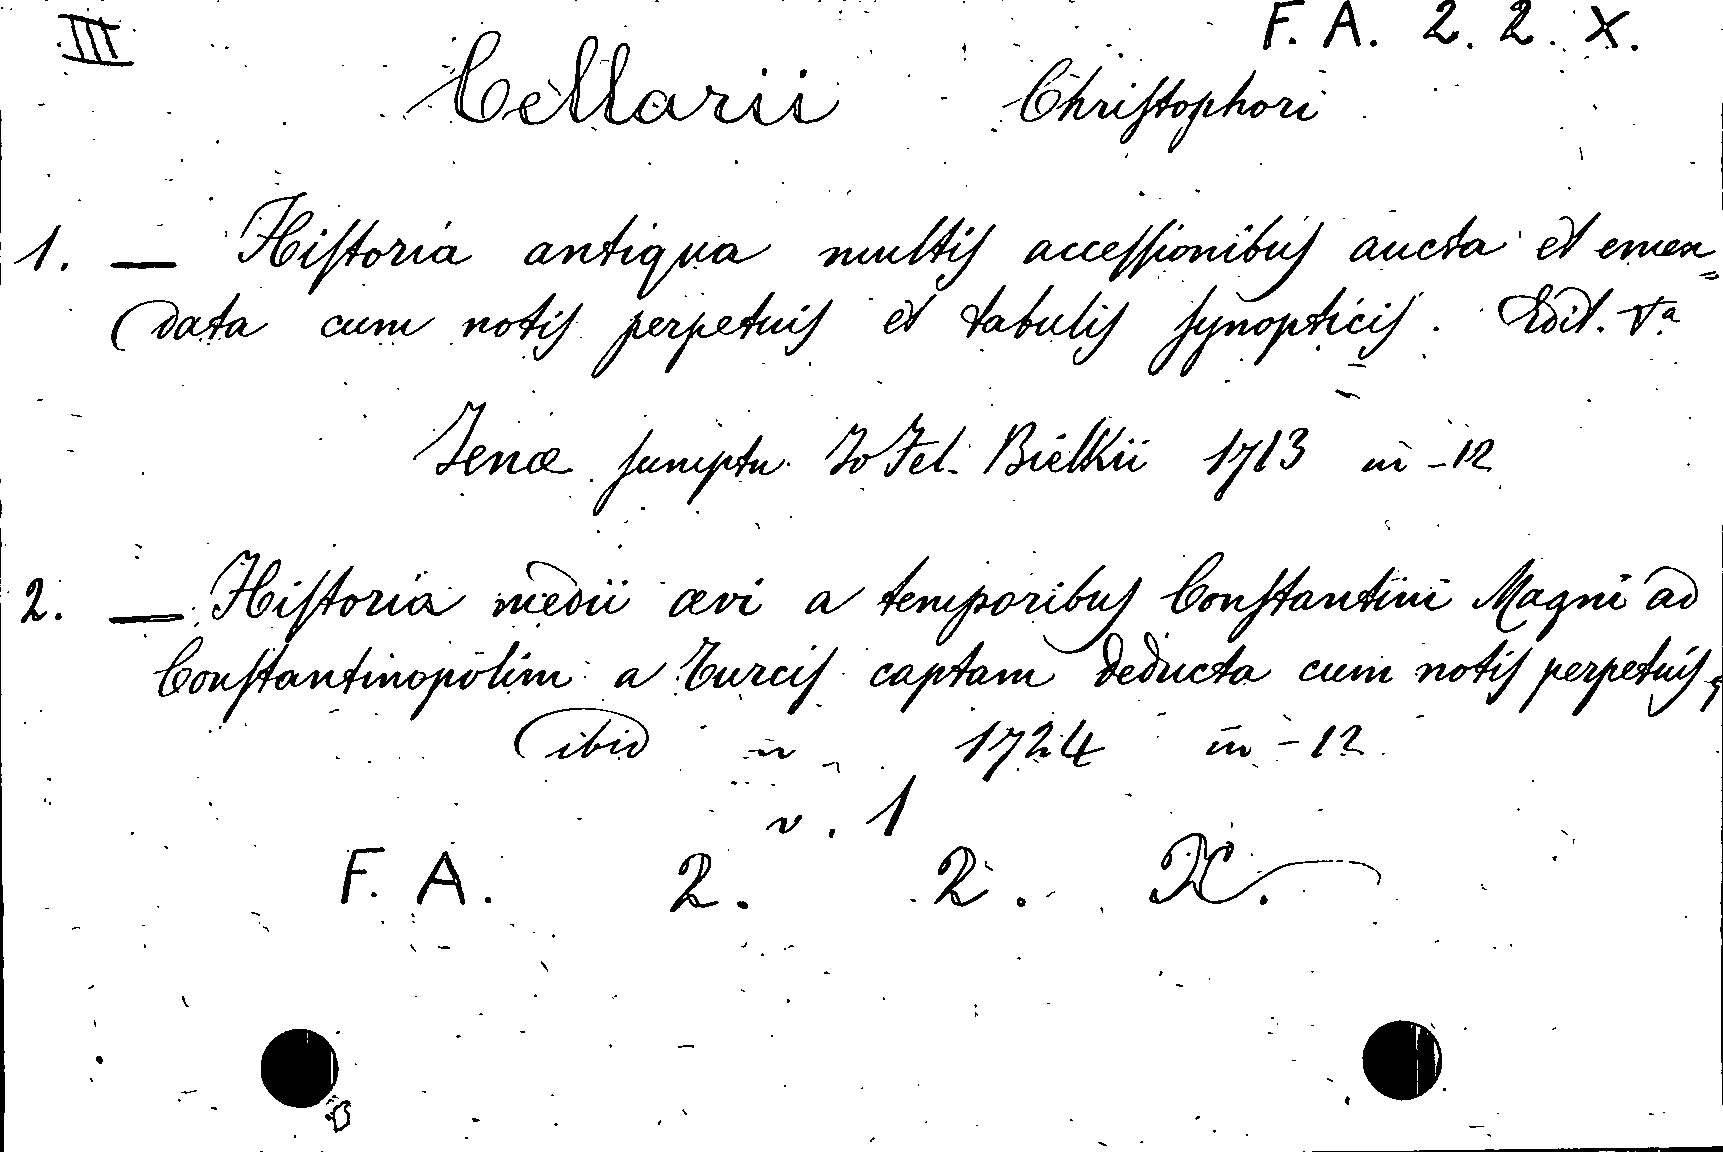 III F. A. 2. 2. X.
Cellarii Christophori
1. — Historia antiqua multis accessionibus aucta et emen=
data cum notis perpetuis et tabulis synopticis. Edit. Va
Jenæ sumptu Jo Fel. Bielkii 1713 in-12
2. — Historia medii ævi a temporibus Constantini Magni ad
Constantinopolim a Turcis captam deducta cum notis perpetuis,
ibid 1724 in-12
v. 1
F. A. 2. 2. X.